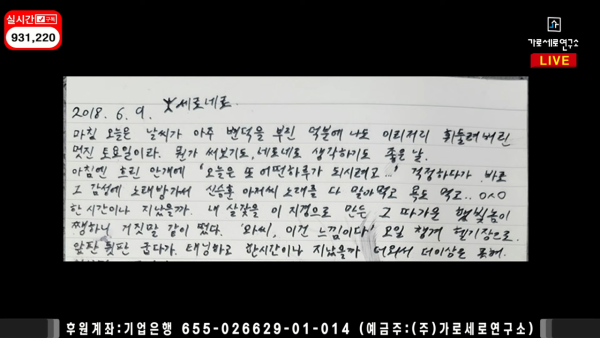 실시간 구독
931,220
가로세로연구소
LIVE
2018. 6. 9. 세로네로
마침 오늘은 날씨가 아주 변덕을 부린 덕분에 나도 이리저리 휘둘려버린
멋진 토요일이라. 뭔가 써보기도, 네로네로 생각하기도 좋은 날.
아침엔 흐린 안개에 '오늘은 또 어떤하루가 되시려고...' 걱정하다가 바로
그 감성에 노래방가서 신승훈 아저씨 노래를 다 말아먹고 욕도 먹고..
한시간이나 지났을까. 내 살갗을 이 지경으로 만든 그 따가운 햇빛놈이
쨍하니 거짓말 같이 떴다. '와씨, 이건 느낌이다' 오일 챙겨 헬기장으로.
앞판 뒷판 굽다가. 태닝하고 한시간이나 지났을까 더와서 더이상은 못해.
후원계좌:기업은행 655-026629-01-014 (예금주:(주)가로세로연구소)